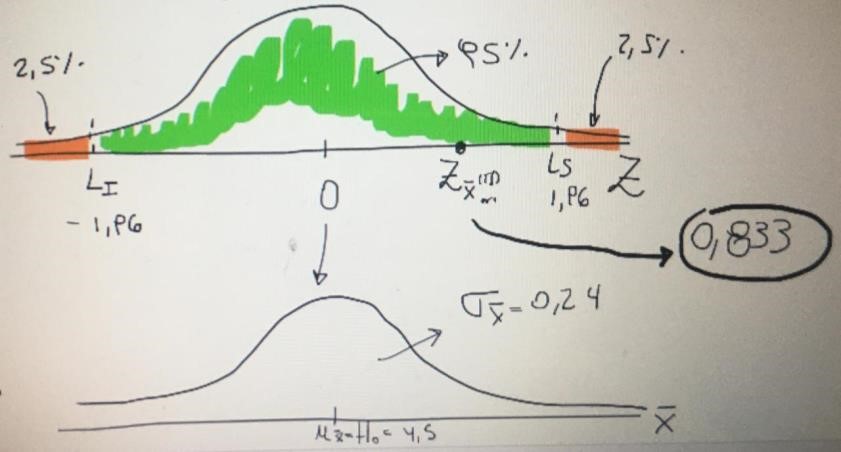 2,5%.
95%.
2,5%.
LI
- 1,96
0
Zx̄m(1)
LS
1,96
Z
0,833
σx̄ = 0,24
μx̄=H₀= 4,5
x̄